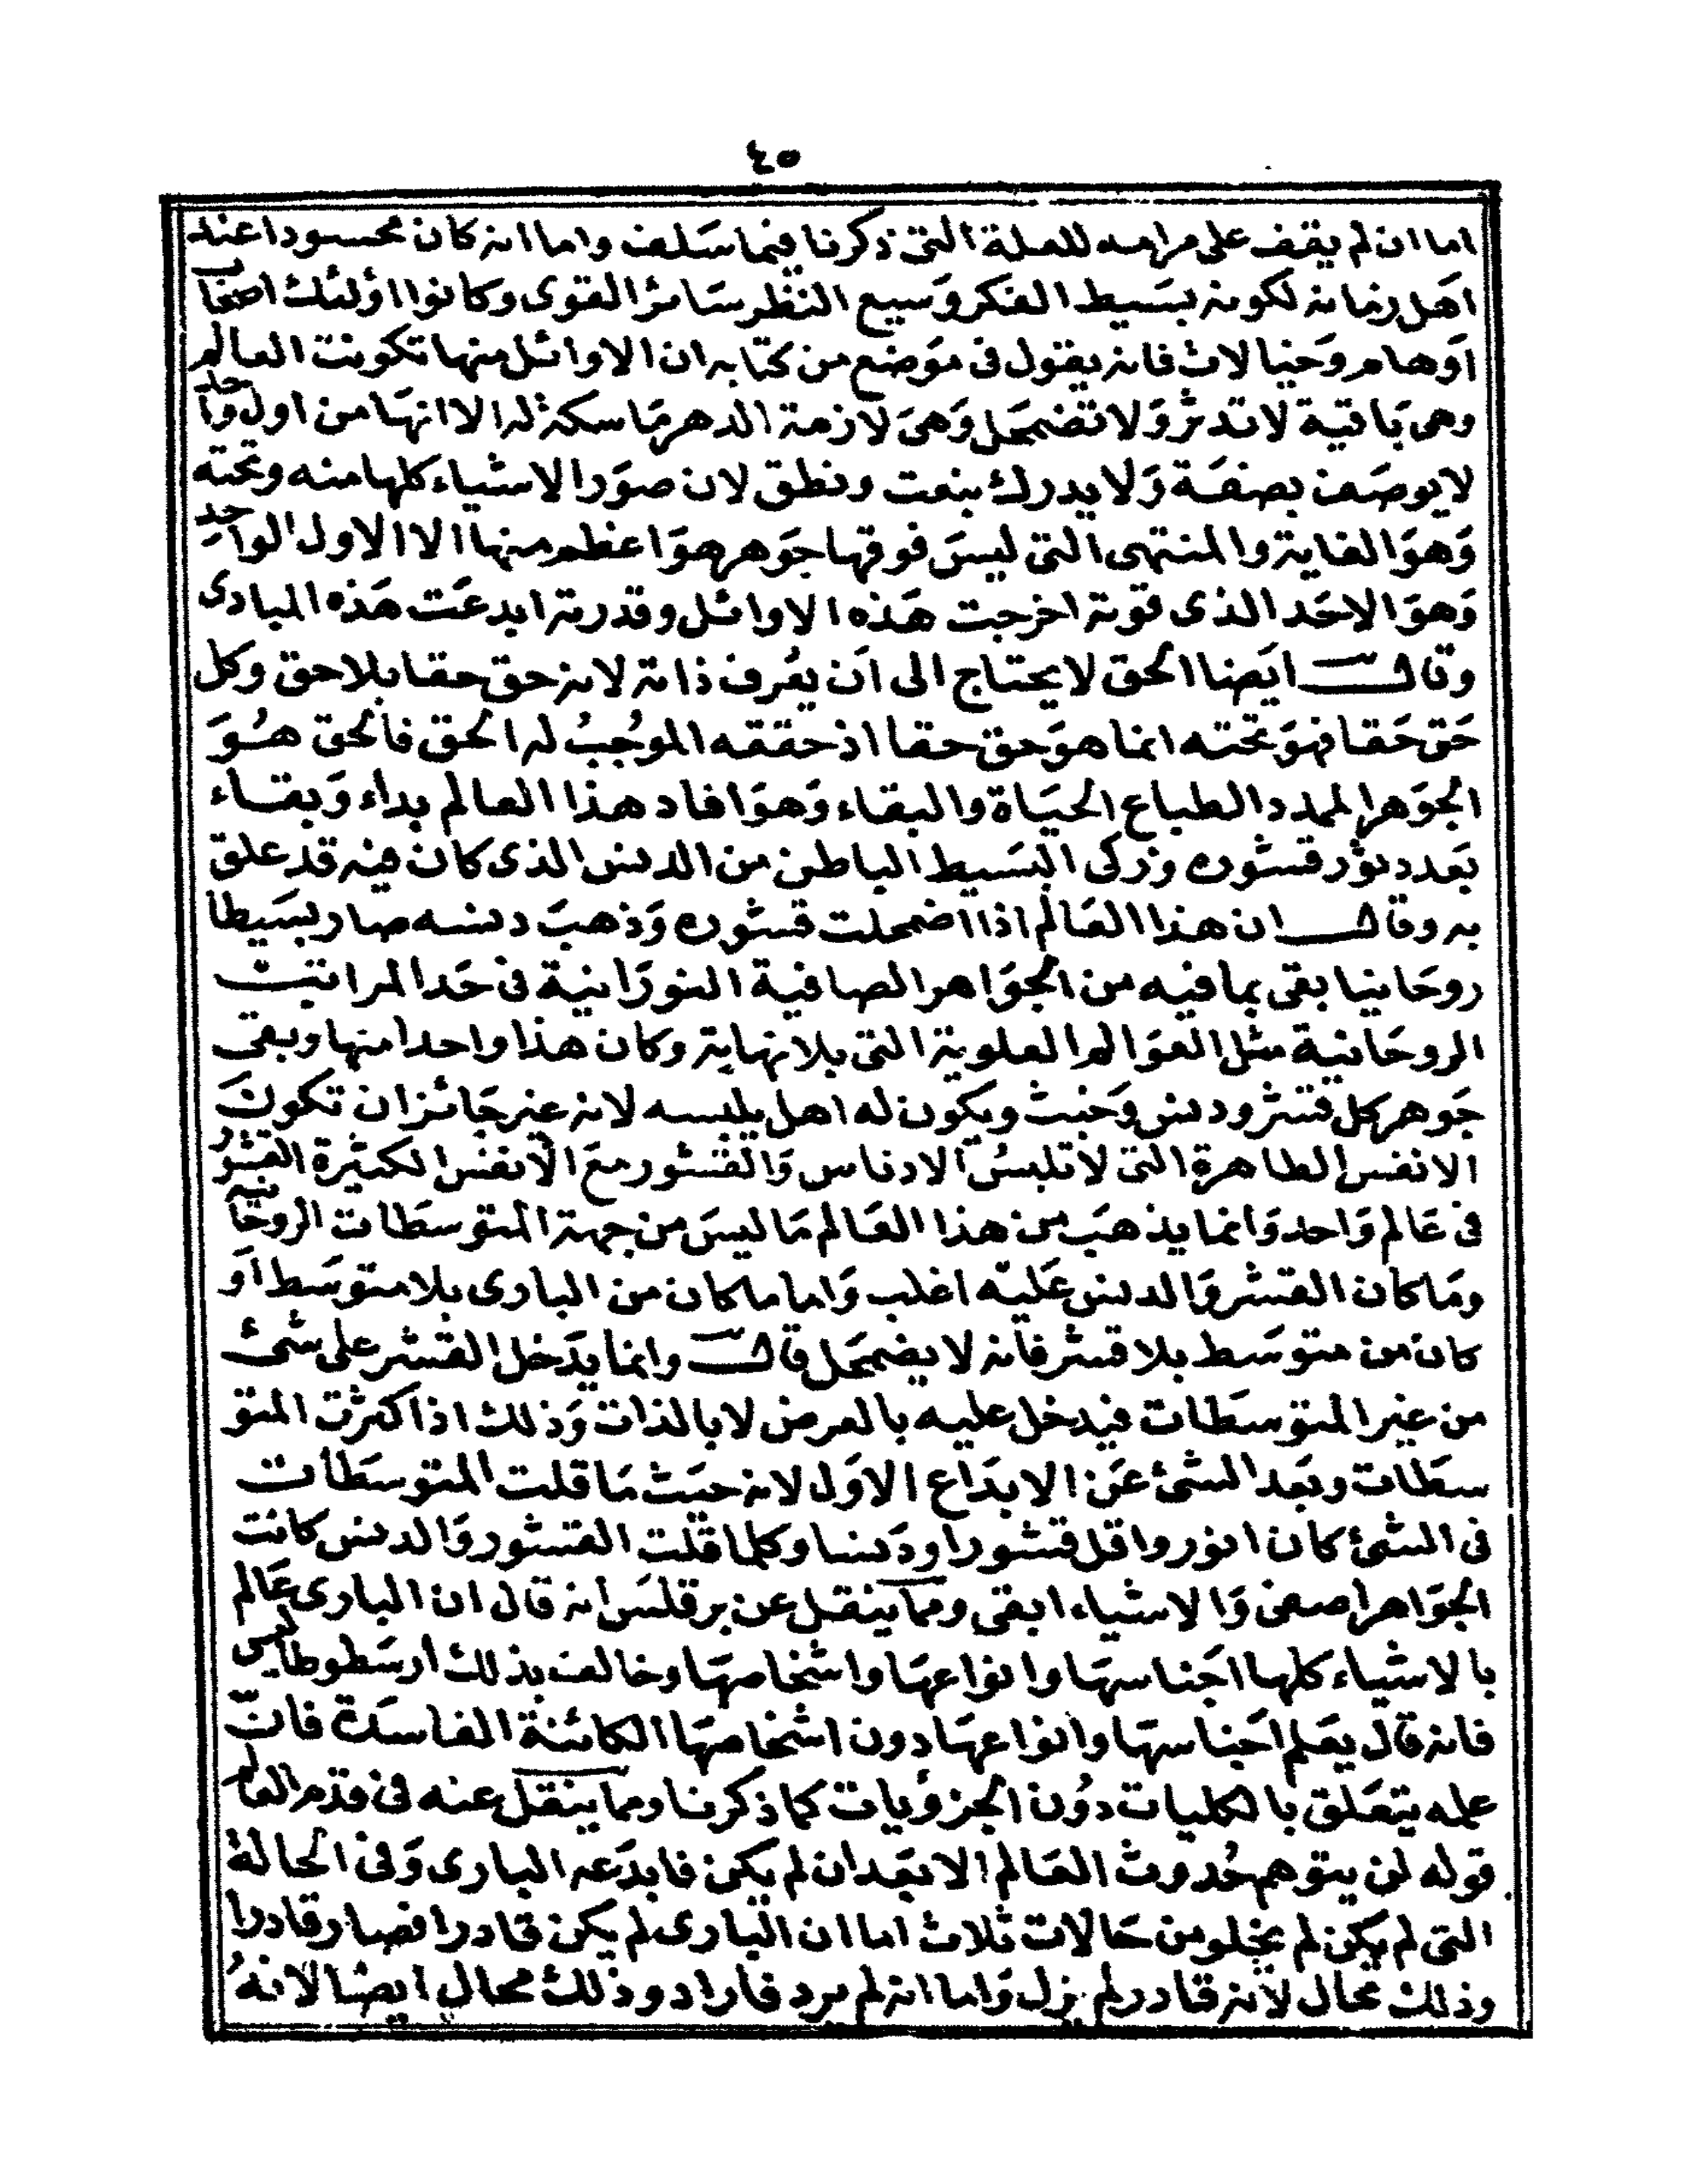 ٤٥
اما ان لم يقف على مرامه للعلة التى ذكرنا فيما سلف واما انه كان محسودا عند
اهل زمانه لكونه بسيط الفكر وسيع النظر سائر القوى وكانوا اؤلئك اصحاب
اوهام وخيالات فانه يقول فى موضع من كتابه ان الاوائل منها تكونت العالم
وهى باقية لاتدثر ولا تضمحل وهى لازمة الدهر ماسكة له الا انها من اول واحد
لايوصف بصفة ولا يدرك بنعت ونطق لان صور الاشياء كلها منه وتحته
وهو الغاية والمنتهى التى ليس فوقها جوهر هو اعظم منها الا الاول الواحد
وهو الاحد الذى قوته اخرجت هذه الاوائل وقدرته ابدعت هذه المبادى
وقال ايضا الحق لا يحتاج الى ان يعرف ذاته لانه حق حقا بلا حق وكل
حق حقا فهو تحته انما هو حق حقا اذ حققه الموجب له الحق فالحق هو
الجوهر الممدد الطباع الحياة والبقاء وهو افاد هذا العالم بداء وبقاء
بعد دثور قشوره وزكى البسيط الباطن من الدنس الذى كان فيه قد علق
به وقال ان هذا العالم اذا اضمحلت قشوره وذهب دنسه صار بسيطا
روحانيا بقى بما فيه من الجواهر الصافية النورانية فى حد المراتب
الروحانية مثل العوالم العلوية التى بلا نهاية وكان هذا واحدا منها وبقى
جوهر كل قشر ودنس وخبث ويكون له اهل يلبسه لانه غير جائز ان تكون
الانفس الطاهرة التى لا تلبس الادناس والقشور مع الانفس الكثيرة القشور
فى عالم واحد وانما يذهب من هذا العالم ما ليس من جهة المتوسطات الروحانية
وما كان القشر والدنس عليه اغلب واما ما كان من البارى بلا متوسط او
كان من متوسط بلا قشر فانه لا يضمحل قال وانما يدخل القشر على شئ
من غير المتوسطات فيدخل عليه بالعرض لا بالذات وذلك اذا كثرت المتو
سطات وبعد الشئ عن الابداع الاول لانه حيث ما قلت المتوسطات
فى الشئ كان انور واقل قشورا ودنسا وكلما قلت القشور والدنس كانت
الجواهر اصفى والاشياء ابقى ومما ينقل عن برقلس انه قال ان البارى عالم
بالاشياء كلها اجناسها وانواعها واشخاصها وخالف بذلك ارسطوطاليس
فانه قال يعلم اجناسها وانواعها دون اشخاصها الكائنة الفاسدة فان
علمه يتعلق بالكليات دون الجزؤيات كما ذكرنا ومما ينقل عنه فى قدم العالم
قوله لن يتوهم حدوث العالم الا بعد ان لم يكن فابدعه البارى وفى الحالة
التى لم يكن لم يخلو من حالات ثلاث اما ان البارى لم يكن قادرا فصار قادرا
وذلك محال لانه قادر لم يزل واما انه لم يرد فاراد وذلك محال ايضا لانه